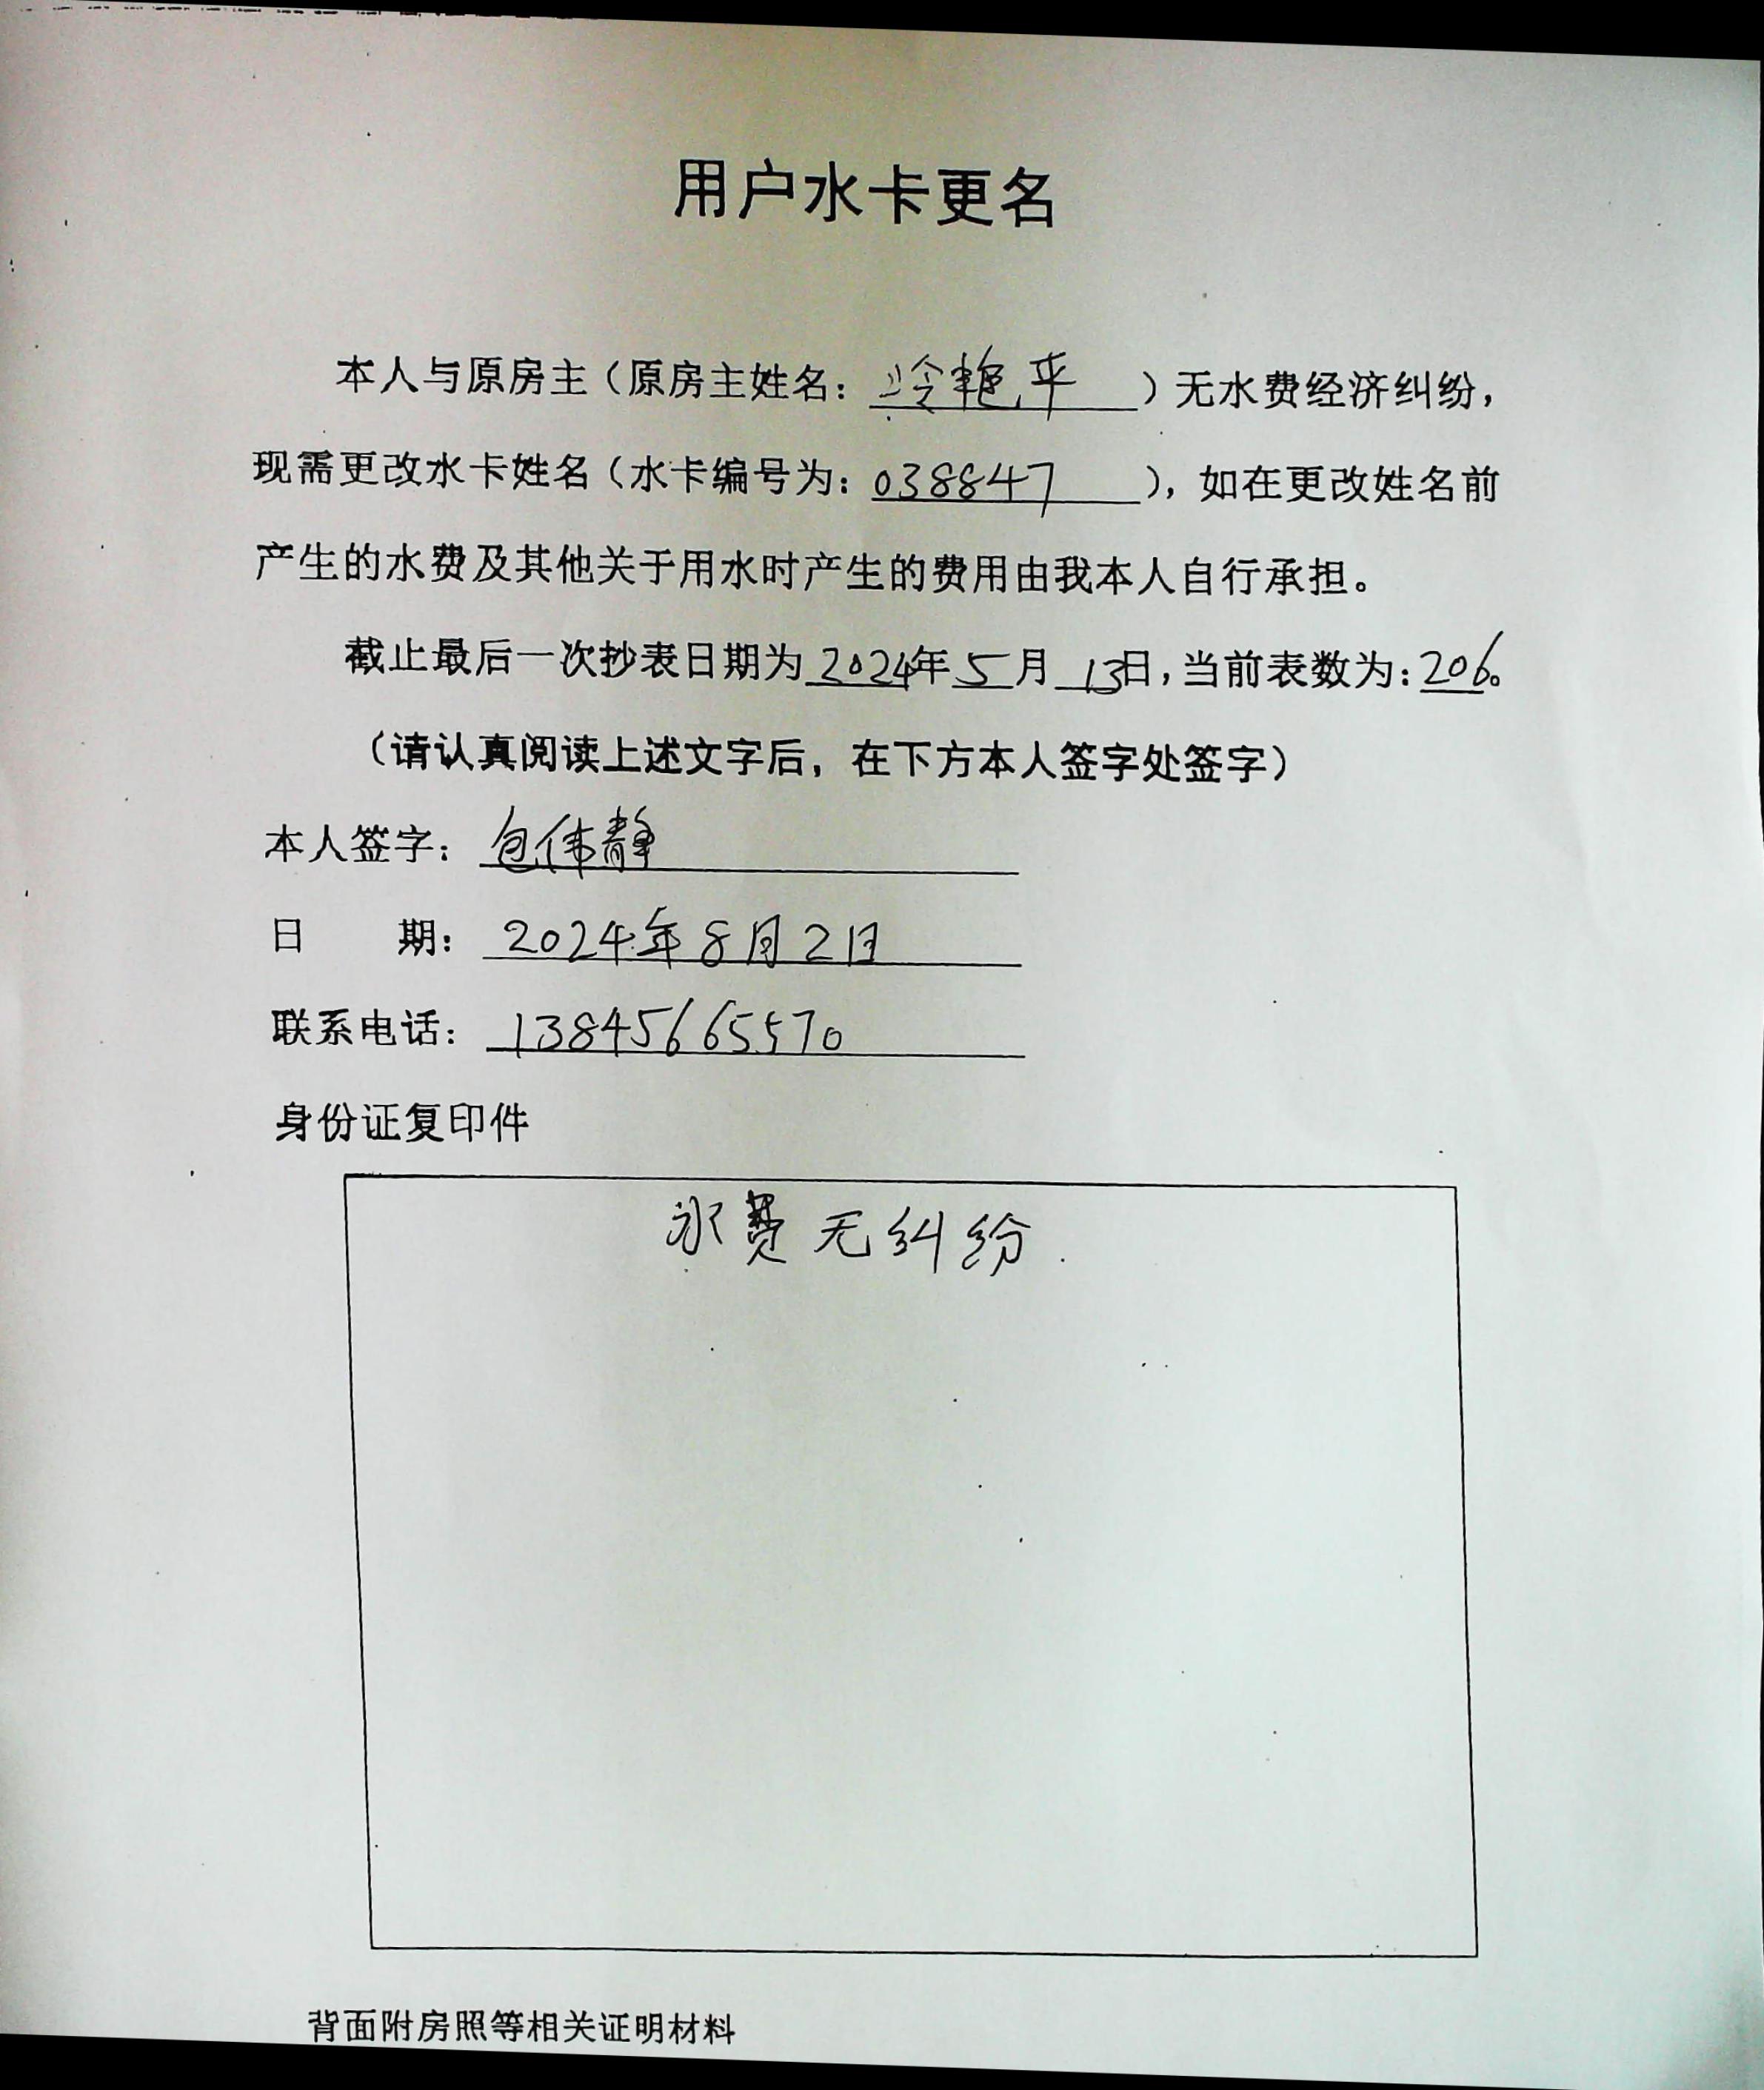 用户水卡更名
本人与原房主（原房主姓名：冷艳平）无水费经济纠纷，
现需更改水卡姓名（水卡编号为：038847），如在更改姓名前
产生的水费及其他关于用水时产生的费用由我本人自行承担。
截止最后一次抄表日期为2024年5月13日，当前表数为：206。
（请认真阅读上述文字后，在下方本人签字处签字）
本人签字：包伟静
日 期：2024年8月2日
联系电话：13845665570
身份证复印件
水费无纠纷.
背面附房照等相关证明材料